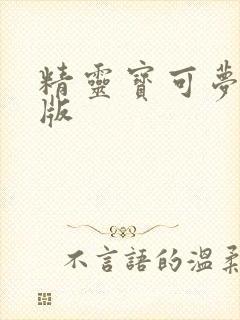 精靈寶可夢
版
不言語的溫柔